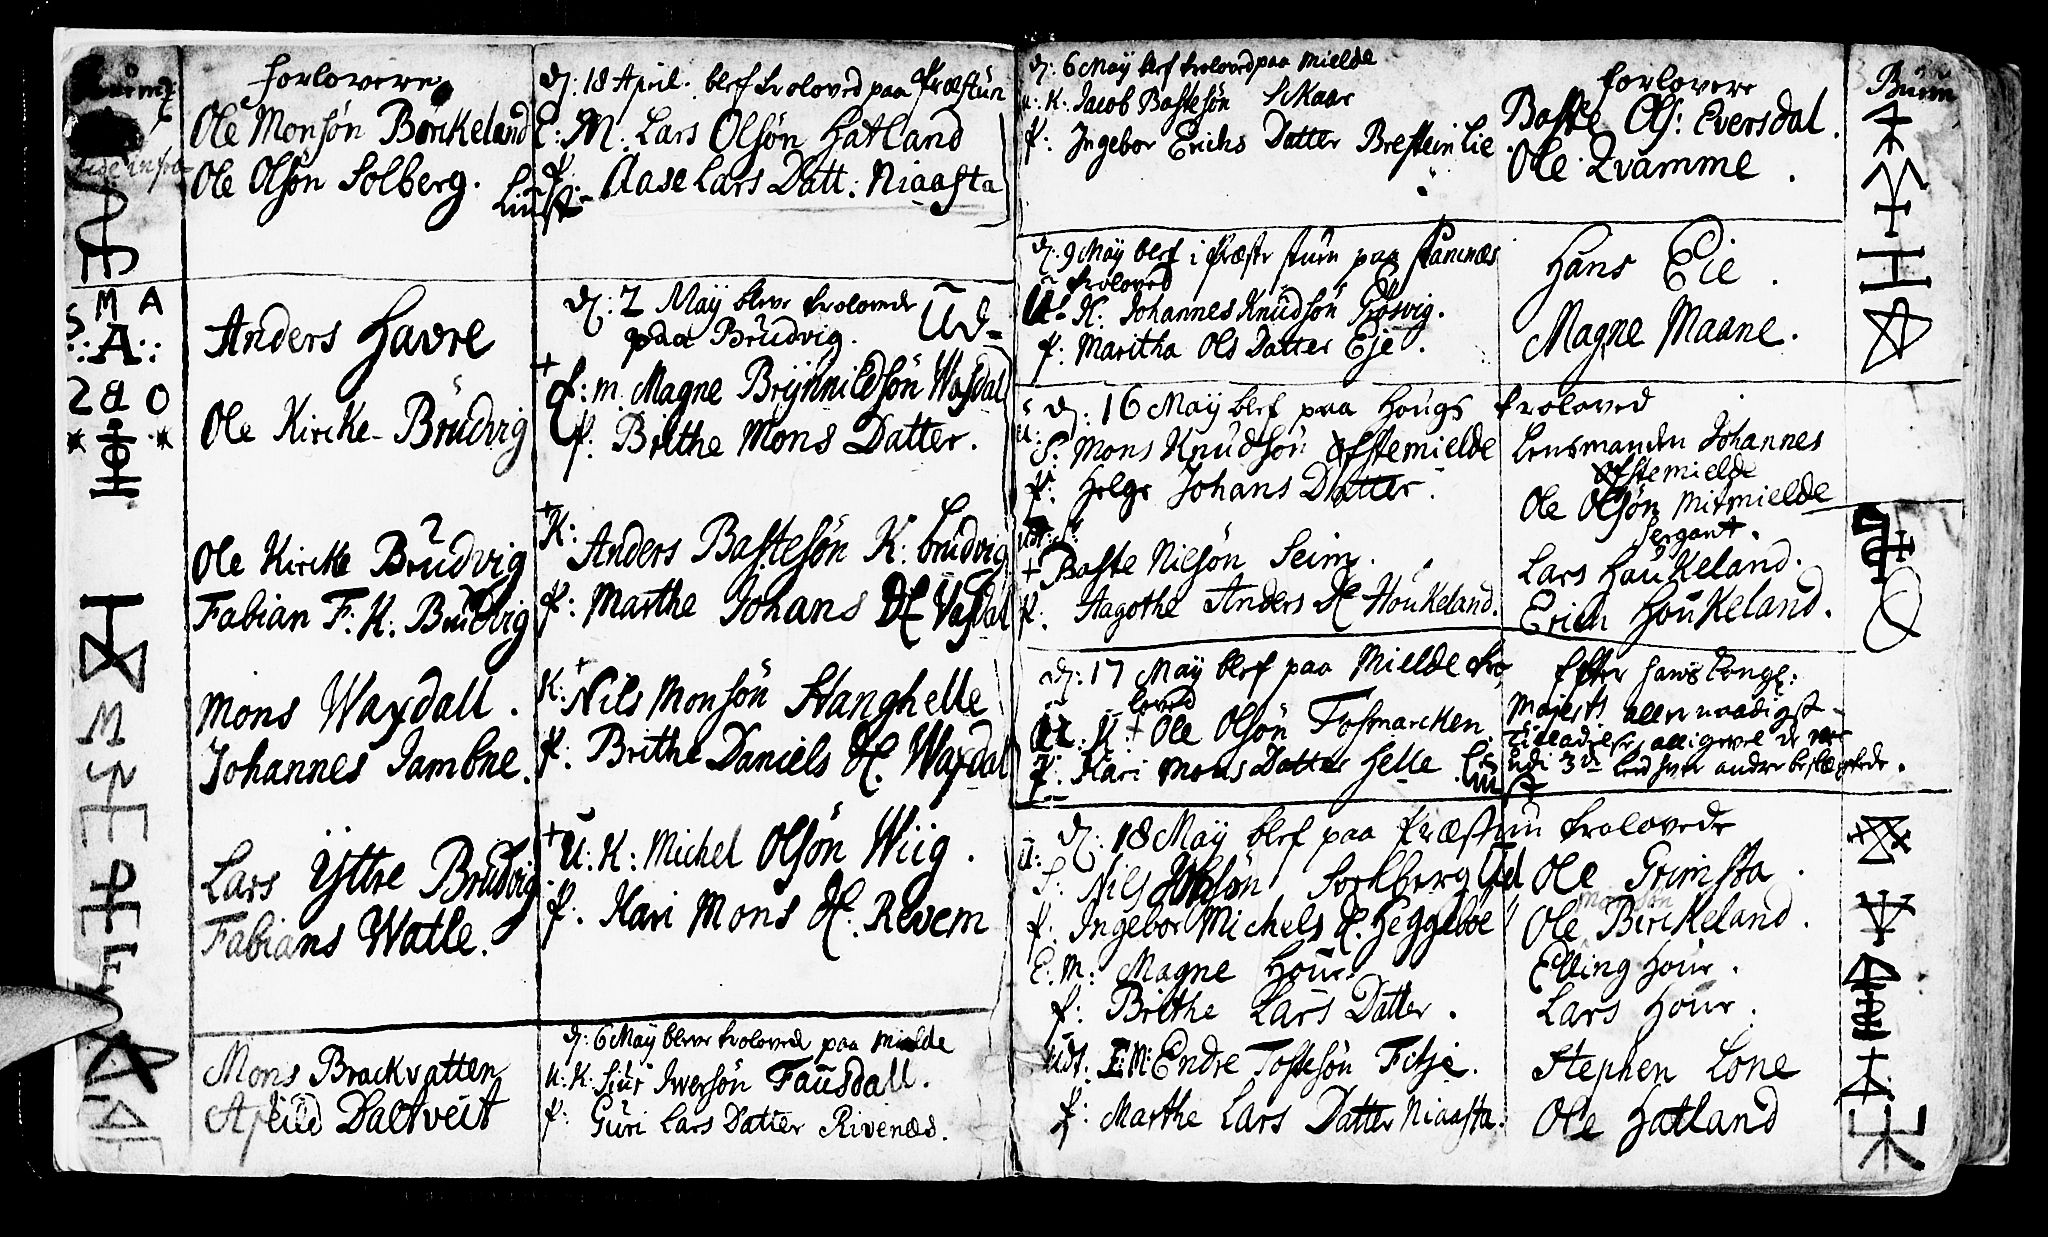 forlovere
Ole Monsøn Børkeland
Ole Olsøn Solberg.
Anders Havre
Ole Kircke-Brüdvig
Ole Kircke Brüdvig
Fabian F: K: Brudvig
Mons Waxdall.
Johannes Jambne.
Lars Yttre Brüdvig
Fabians Watle.
Mons Brackvatten
Daltveit
M A
S
:A:
2 a O
d: 18 April. blef troloved paa Præstün
E: M. Lars Olsøn Hatland
f: Aase Lars Datt: Niaasta
d: 2 Maÿ bleve trolovede
paa Brüdvig. Ud-
E: m. Magne Brÿnnildsøn Waxdal
f: Brithe Mons Datter.
K: Anders Bastesøn K: brüdvig
f: Marthe Johans D. Vaxdal
K: Nils Monsøn Stanghelle
f: Brithe Daniels D. Waxdal
U: K: Michel Olsøn Wiig.
f: Kari Mons D. Revem
d: 6 Maÿ bleve trolovede paa Mielde
U: K: Siur Iwersøn Faüsdall.
f: Güri Lars Datter Rivenæs.
d: 6 Maÿ blef troloved paa Mielde
U: K: Jacob Bastesøn Skaar
f: Ingebor Erichs Datter Bresteinlie
d: 9 Maÿ blef i Præste stuen paa Hammes
troloved
U: K: Johannes Knüdsøn Trøsvig.
f: Maritha Ols Datter Eje.
d: 16 Maÿ blef paa Hougs troloved
S: Mons Knüdsøn Øfstemielde
f: Helge Johans Datter.
Baste Nilsøn Seim.
f: Aagothe Anders D Houkeland.
d: 17 Maÿ blef paa Mielde tro
loved
U: K: Ole Olsøn Fosmarcken.
f: Kari Mons Datter Helle
d: 18 Maÿ blef paa Præstun trolovede
S: Nils Sorkberg Ud
f: Ingebor Michels D. Heggebøe
E: M: Magne Hour.
f: Brithe Lars Datter.
Udt. E: M: Endre Tostesøn Fitje.
f: Marthe Lars Datter Niaasta.
forlovere
Baste Ols: Eversdal.
Ole Qvamme.
Hans Eie.
Magne Maane.
Lensmanden Johannes
Øfstemielde
Ole Olsøn Mitmielde
Sergant.
Lars Haukeland.
Erich Houkeland.
Efter Hans Kongl:
Majests allernaadigst
Tilladelse, alligevel de vare
udi 3die led hver andre beslægtede.
Ole Grimsta.
Monsøn
Ole Birkeland.
Elling Hour.
Lars Hour.
Stephen Lone
Ole Hatland